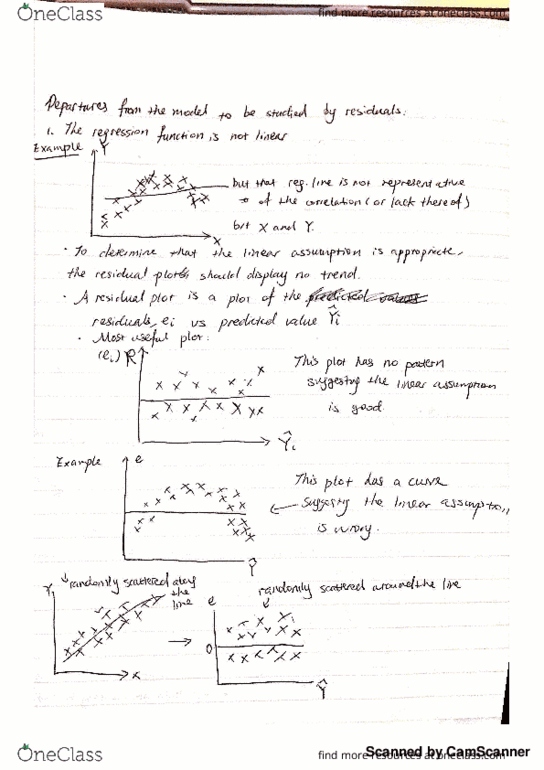 OneClass
find more resources at oneclass.com
Departures from the model to be studied by residuals.
1. The regression function is not linear
Example
Y
but that reg. line is not representative
of the correlation (or lack thereof)
b/t X and Y.
X
• To determine that the linear assumption is appropriate,
the residual plots should display no trend.
• A residual plot is a plot of the predicted values
residuals, ei vs predicted value Ŷi
• Most useful plot:
(ei) R
This plot has no pattern
suggesting the linear assumption
is good.
Ŷi
Example
e
This plot has a curve
suggesting the linear assumption,
is wrong.
Ŷ
Y
randomly scattered along
the
line
X
randomly scattered around the line
e
0
Ŷ
OneClass
find more resources at oneclass.com
Scanned by CamScanner